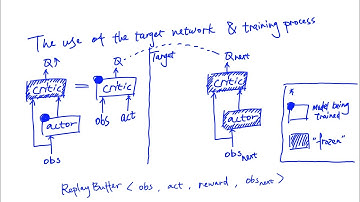 The use of the target network & training process
Q↑
Q
Target
Qnext
critic
=
critic
critic
actor
obs
act
actor
obs
obsnext
model being trained
"frozen"
Replay Buffer < obs, act, reward, obsnext >